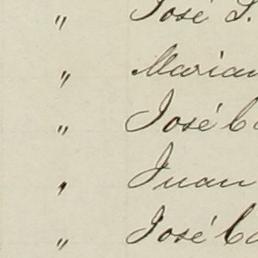 " José S.
" Marian
" José Ca
" Juan
" José Ca